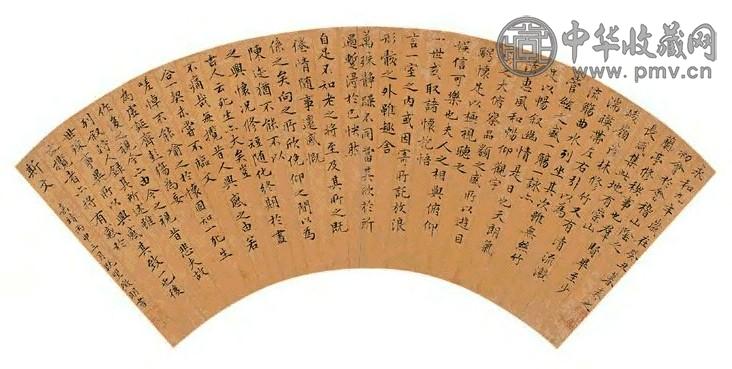 永和九年歲在癸丑暮春之
初會於會稽山陰之
蘭亭修稧事也羣賢畢至少
長咸集此地有崇山
峻領茂林修竹又有清流激
湍暎帶左右引以為
流觴曲水列坐其次雖無絲竹
管絃之盛一觴一詠亦
足以暢叙幽情是日也天朗氣
清惠風和暢仰觀宇
宙之大俯察品類之盛所以遊目
騁懷足以極視聽之
娛信可樂也夫人之相與俯仰
一世或取諸懷抱悟
言一室之內或因寄所託放浪
形骸之外雖趣舍
萬殊靜躁不同當其欣於所
遇蹔得於己快然
自足不知老之將至及其所之既
惓情隨事遷感慨
係之矣向之所欣俛仰之間以為
陳迹猶不能不以
之興懷況修短隨化終期於盡
古人云死生亦大矣豈
不痛哉每攬昔人興感之由若
合一契未嘗不臨文
嗟悼不能喻之於懷固知一死生
為虛誕齊彭殤為妄
作後之視今亦由今之視昔悲夫故
列叙時人錄其所述雖
世殊事異所以興懷其致一也後
之攬者亦將有感於
斯文
嘉靖丙申三月既望徵明書
中华收藏网
www.pmv.cn